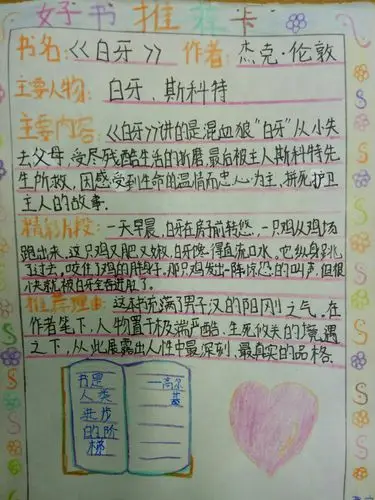 好书推荐卡
书名:《白牙》 作者:杰克·伦敦
主要人物:白牙、斯科特
主要内容:《白牙》讲的是混血狼“白牙”从小失
去父母,受尽残酷生活的折磨,最后被主人斯科特先
生所救,因感受到生命的温情而忠心为主,拼死护卫
主人的故事。
精彩片段:一天早晨,白牙在房前转悠,一只鸡从鸡场
跑出来,这只鸡又肥又嫩,白牙馋得直流口水。它纵身跳
了过去,咬住了鸡的脖子,那只鸡发出一阵惊恐的叫声,但很
快就被白牙生吞进肚了。
推荐理由:这本书充满了男子汉的阳刚之气,在
作者笔下,人物置于极端严酷、生死攸关的境遇
之下,从此展露出人性中最深刻、最真实的品格。
书是
人类
进步
的阶
梯
——高尔
基